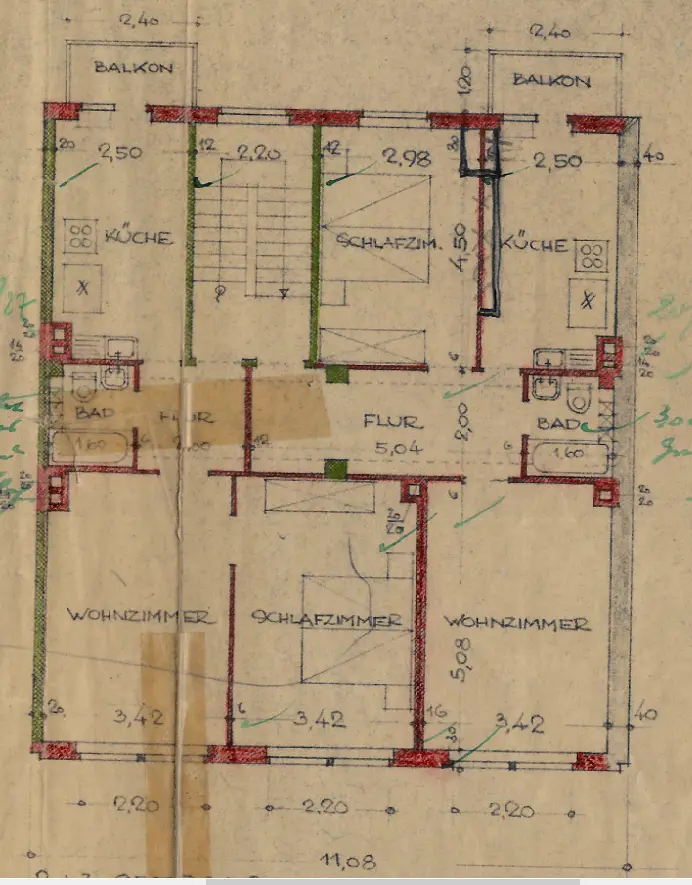 2,40
2,40
BALKON
BALKON
1,20
20
2,50
12
2,20
12
2,98
30
2,50
40
KÜCHE
SCHLAFZIM.
4,50
KÜCHE
X
X
27
6
BAD
FLUR
FLUR
2,00
BAD
1.60
6
2,00
12
5,04
6
1.60
30
6
WOHNZIMMER
SCHLAFZIMMER
WOHNZIMMER
5,08
20
3,42
6
3,42
16
30
3,42
40
2,20
2,20
2,20
11,08